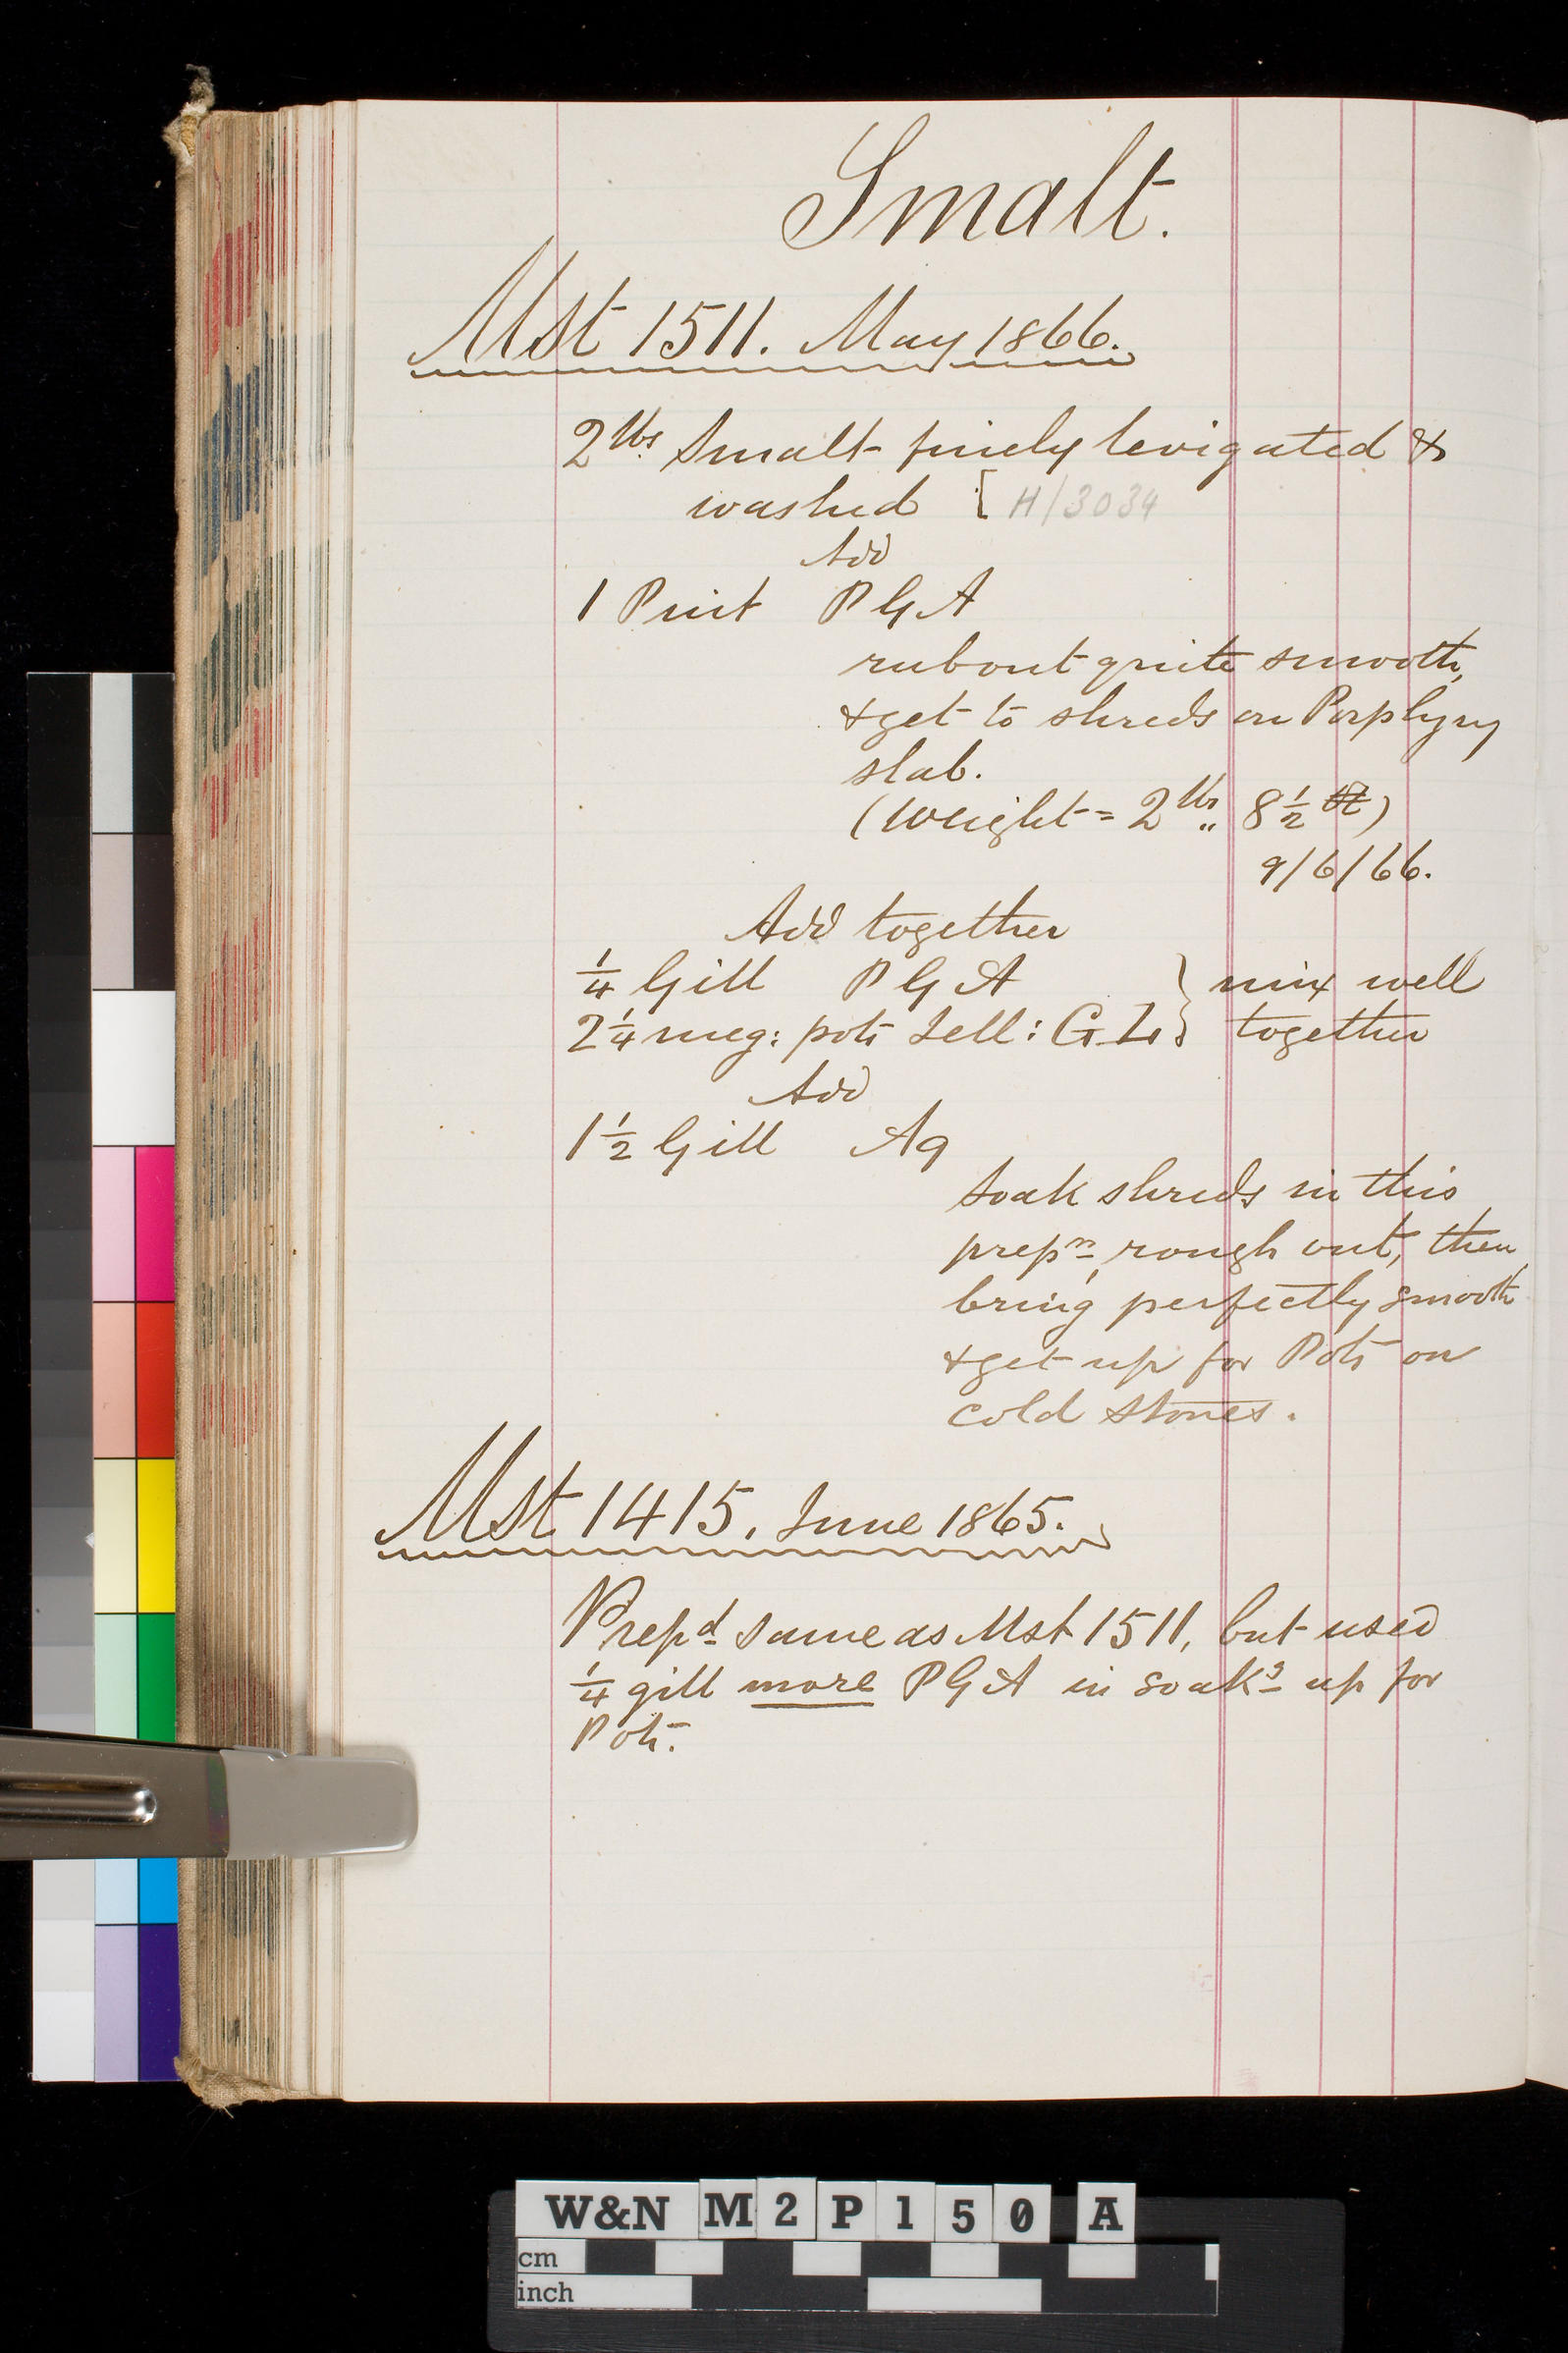 Smalt.
Mst 1511. May 1866.
2 lbs Smalt finely levigated &
washed [ H/3034
Add
1 Pint P G A
rub out quite smooth,
& get to shreds on Porphyry
slab.
(Weight = 2 lbs 8 1/2 )
9/6/66.
Add together
1/4 Gill P G A } mix well
2 1/4 meg: pots Sell: G L } together
Add
1 1/2 Gill Aq
Soak shreds in this
prepn, rough out, then
bring perfectly smooth
& get up for Pots on
cold stones.
Mst 1415. June 1865.
Prepd same as Mst 1511, but used
1/4 gill more P G A in soakg up for
Pots.
W&N M2P150 A
cm
inch